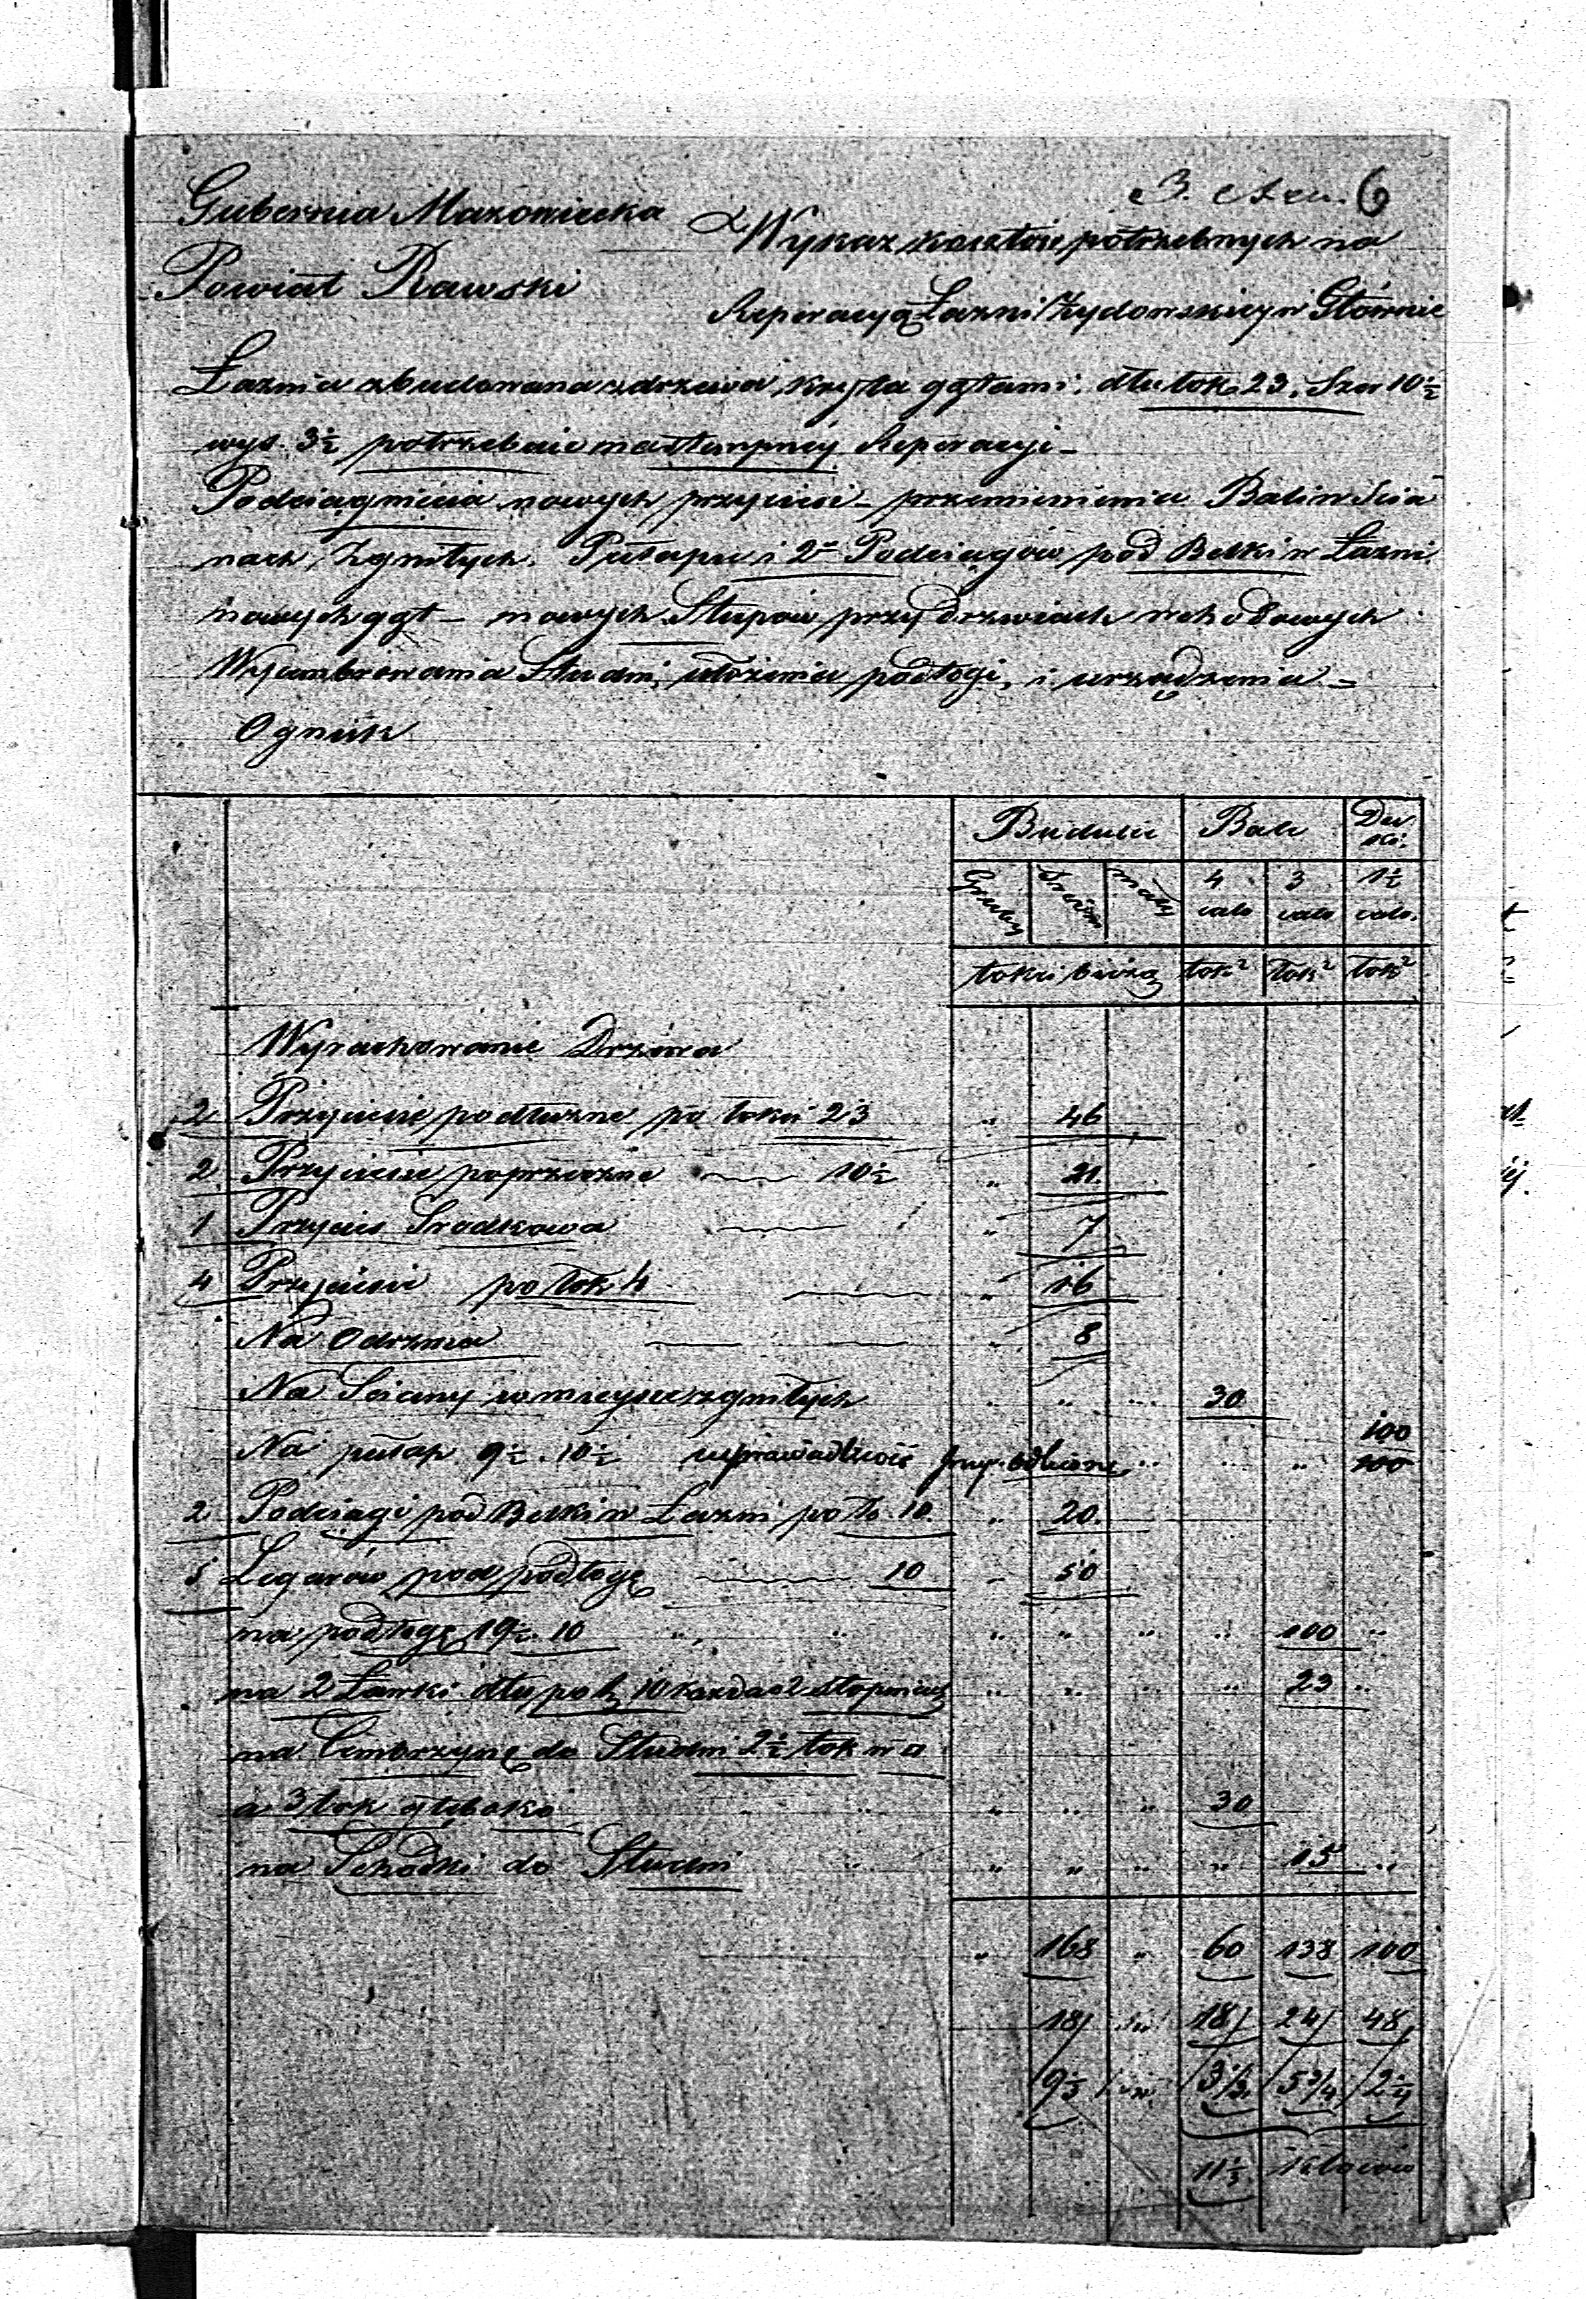 6
Gubernia Mazowiecka
Wykaz kosztów potrzebnych na
Powiat Rawski
Reperacyą Łazni Żydowskiey w Głównie
Łaznia zbudowana z drzewa, kryta gątami, dłu łok. 23. Szer 10½
wys. 3½ potrzebuie nastempney Reperacyi –
Podciągnięcia nowych przyciesi – przemienienia Bali w Scia
nach Zgniłych, Pułapu i 2ch Podciągów pod Belki w Łazni
nowych gąt – nowych Słupów przy Drzwiach wchodowych
Wycembrowania Studni, ułożenia podłogi, i urządzenia =
Ognisk
Budulec Bale Des
ki.
Gruby Sredni mały 4 3 1½
cale cale cale.
łokci bieżą łok² łok² łok²
Wyrachowanie Drzewa
2 Przyciesie podłużne po łokci 23 " 46
2 Przyciesie poprzeczne 10½ " 21.
1 Przycies Srodkowa " 7
4 Przyciesie po łok 4 " 16
Na Odrzwia " 8
Na Sciany w mieysce zgniłych " " " 30
100
Na pułap 9½. 10½ " " 100
2 Podciągi pod Belki w Łazni po ło. 10. " 20.
5 Legarów pod podłogę 10 " 50
na podłogę 19½. 10 " " " " " " 100 "
na 2 Ławki dłu po ł. 10 każda o 2 stopniach " " " " 23 "
na Cembrzynę do Studni 2½ łok w □
a 3 łok głęboko " " " " 30
na Schodki do Studni " " " " " 15 "
" 168 " 60 138 100
18/ 18/ 24/ 48/
/9⅓ /3⅓ /5¾ /2¼
11⅓ Klocow